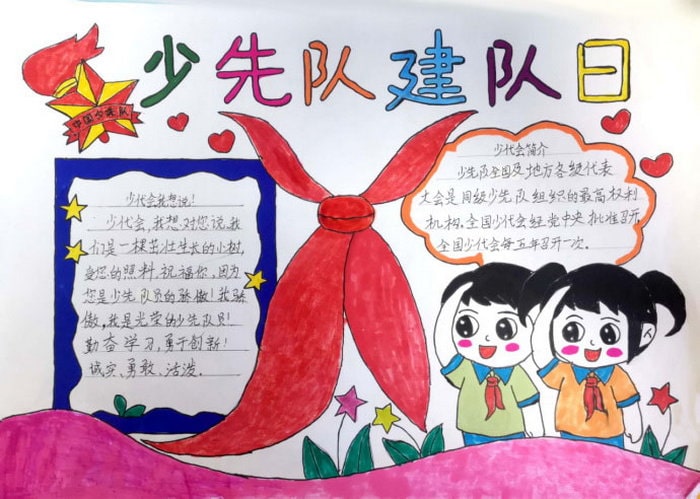 少先队建队日
中国少先队
少代会我想说！
少代会,我想对您说,我
们是一棵茁壮生长的小树,
受您的照料、祝福你、因为
您是少先队员的骄傲！我骄
傲,我是光荣的少先队员！
勤奋学习,勇于创新！
诚实、勇敢、活泼.
少代会简介
少先队全国及地方各级代表
大会是同级少先队组织的最高权利
机构.全国少代会经党中央批准召开.
全国少代会每五年召开一次.